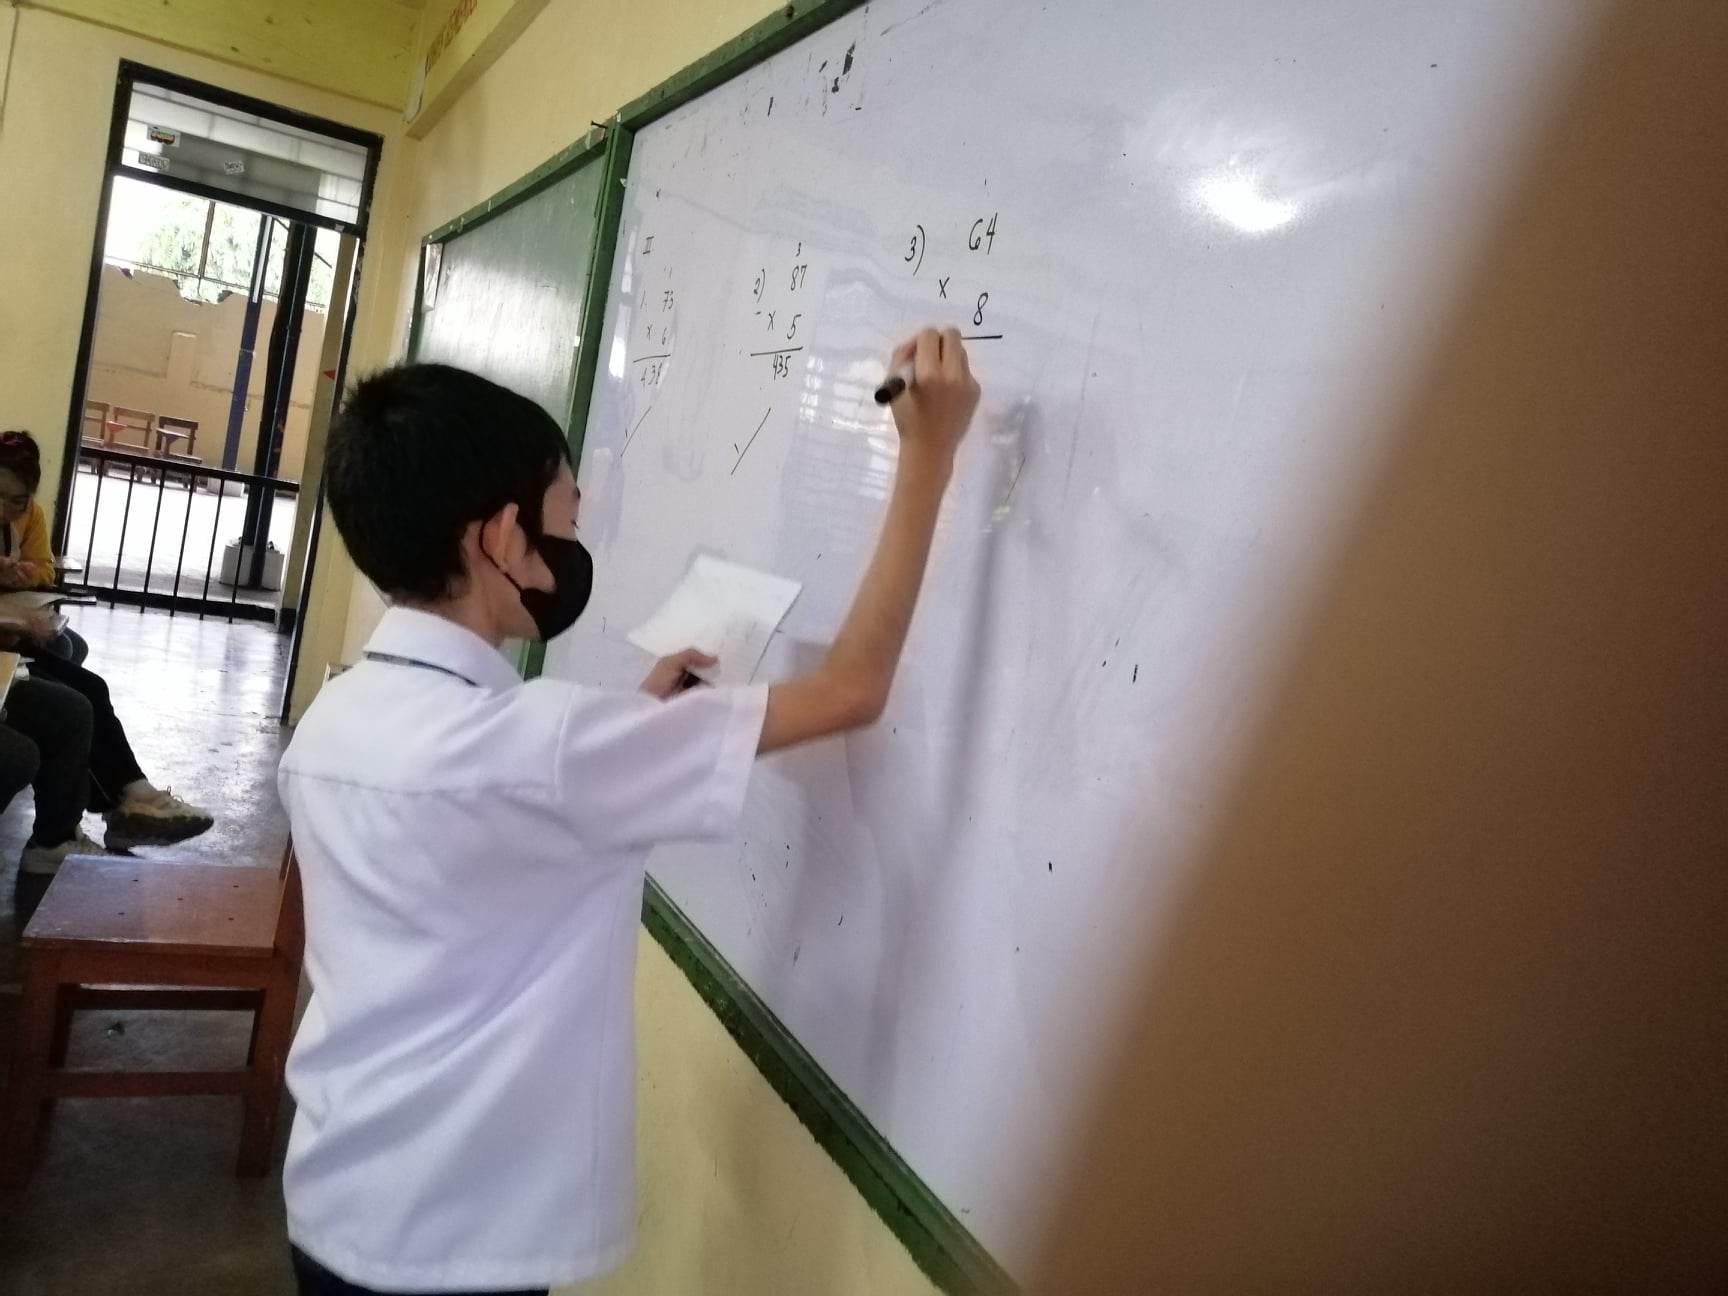 II
1. 73
x 6
438
3
2) 87
x 5
435
3) 64
x 8